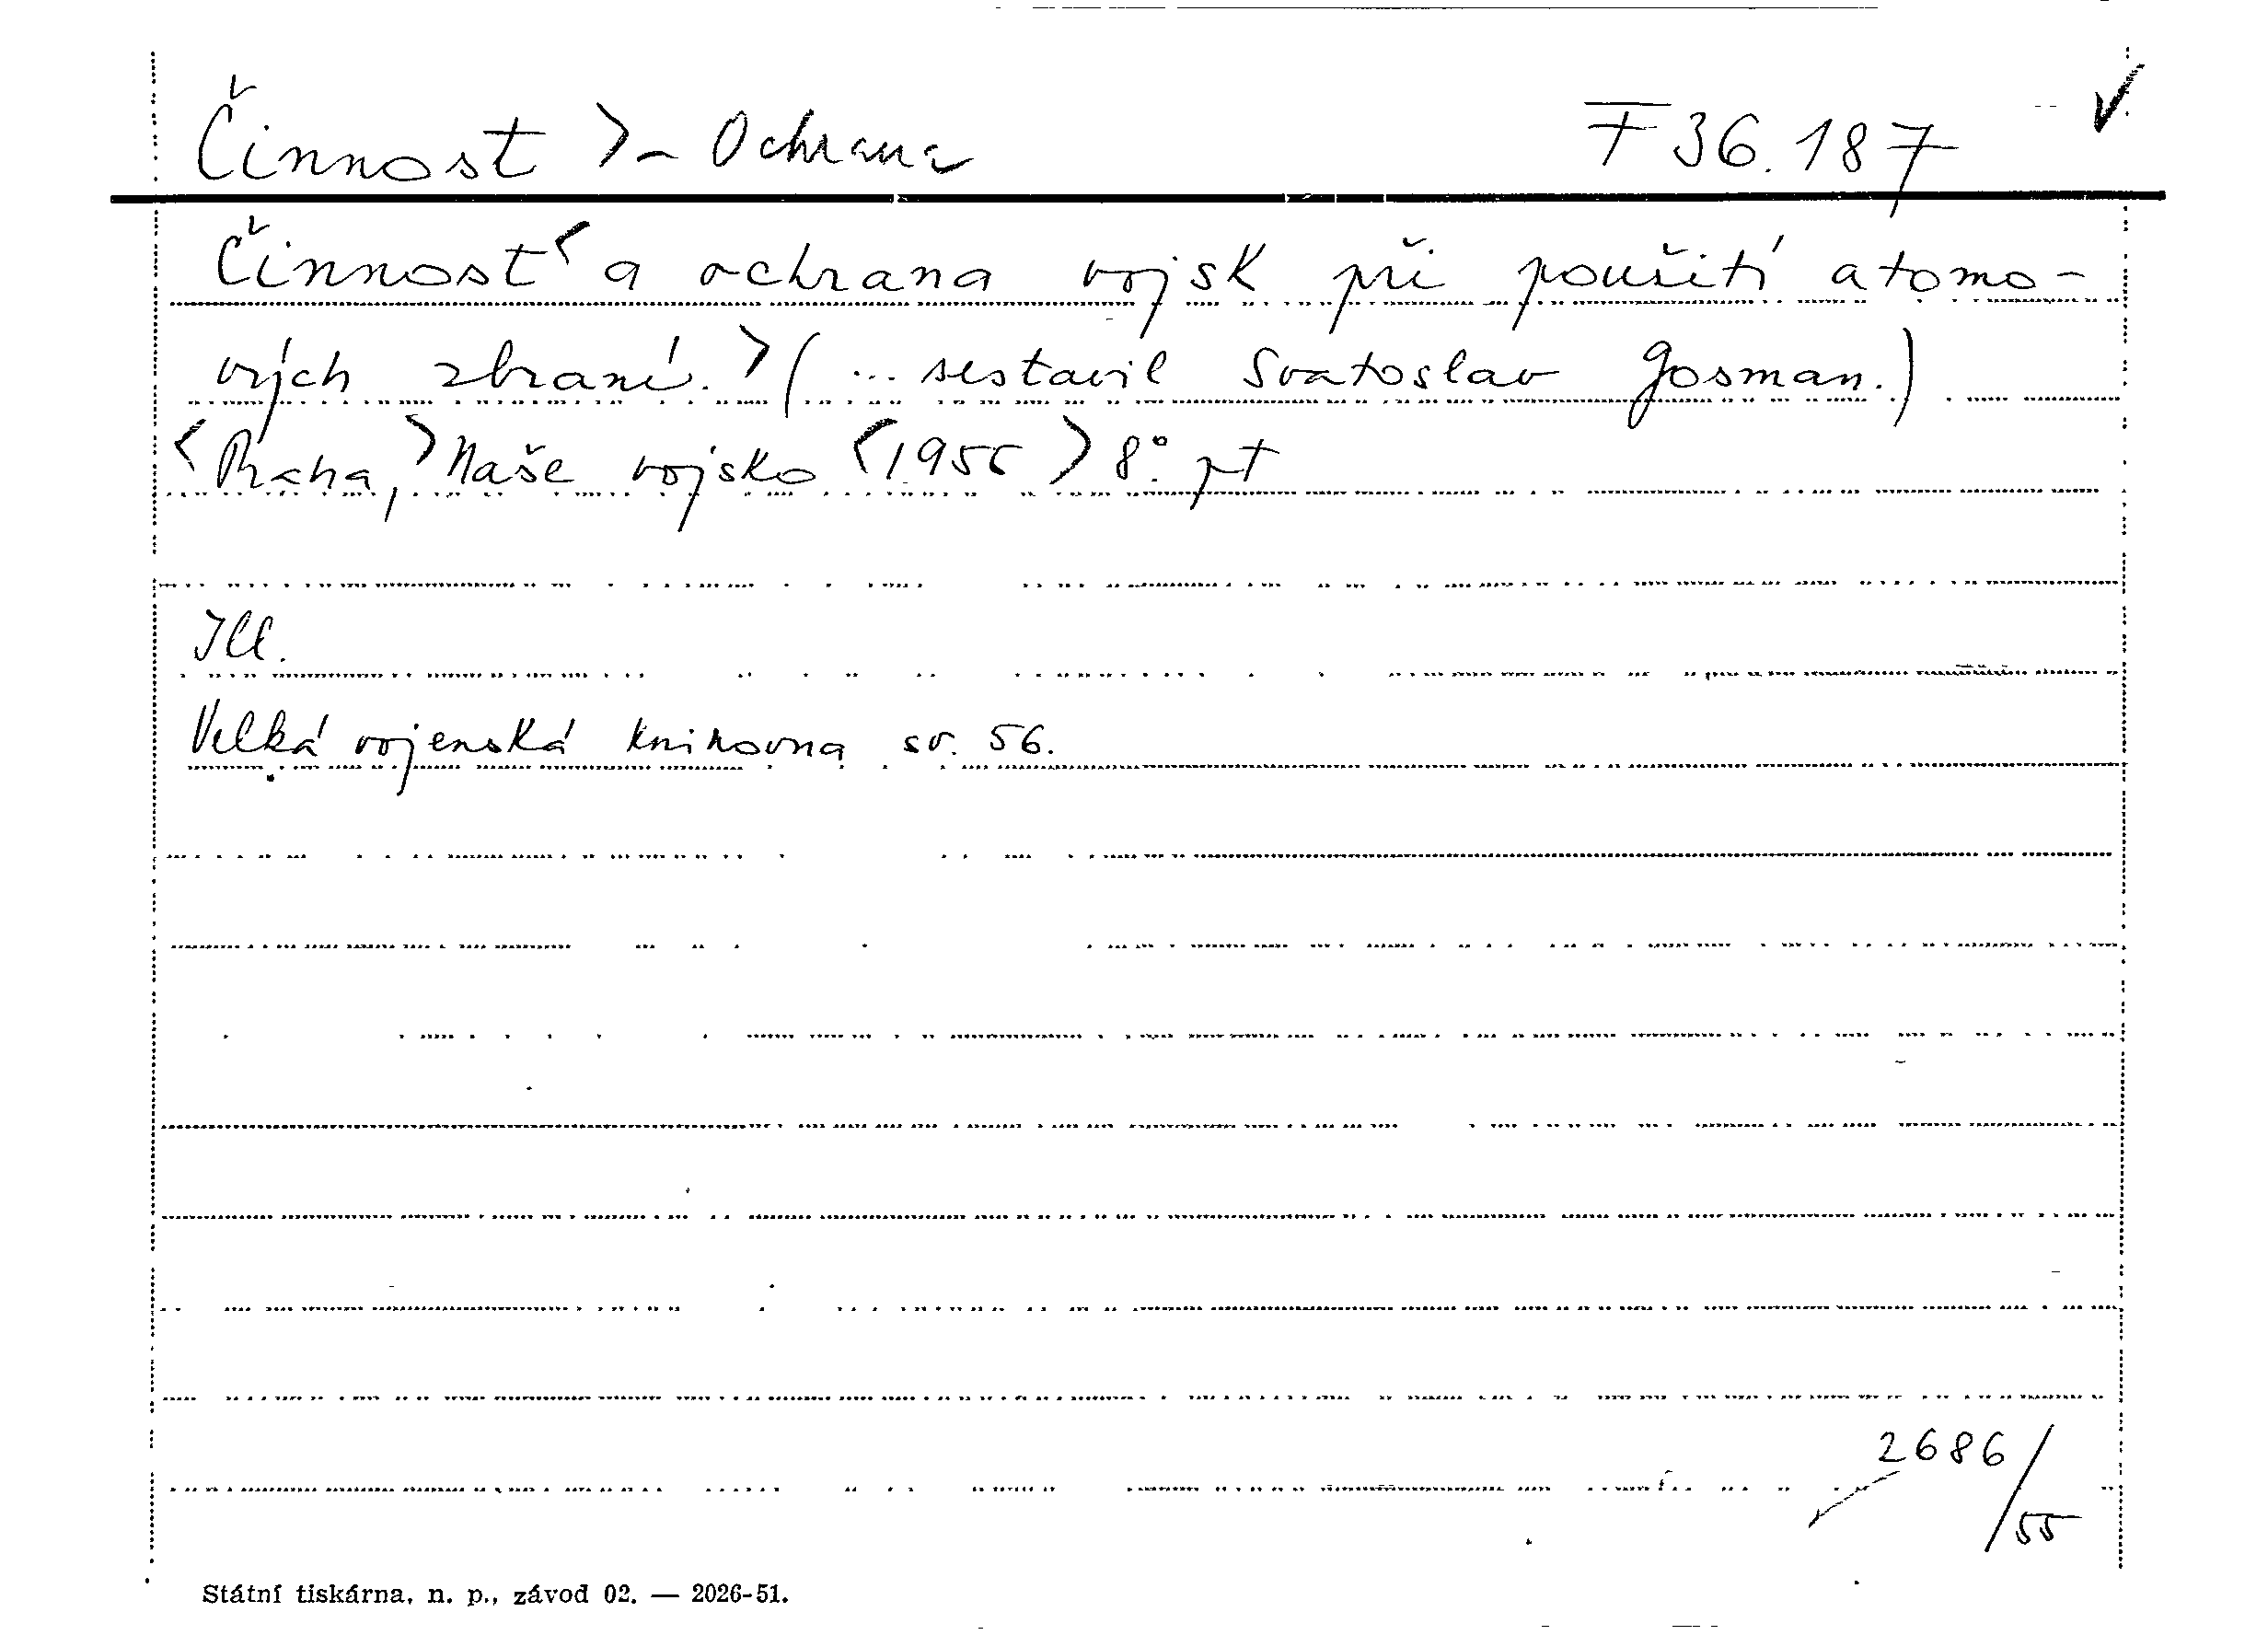 Činnost >- Ochrana F 36.187
Činnost < a ochrana vojsk při použití atomo-
vých zbraní. > (... sestavil Svatoslav Gosman.)
<Praha,> Naše vojsko <1955> 8°. pt
Ill.
Velká vojenská knihovna sv. 56.
2686/55
Státní tiskárna, n. p., závod 02. — 2026-51.